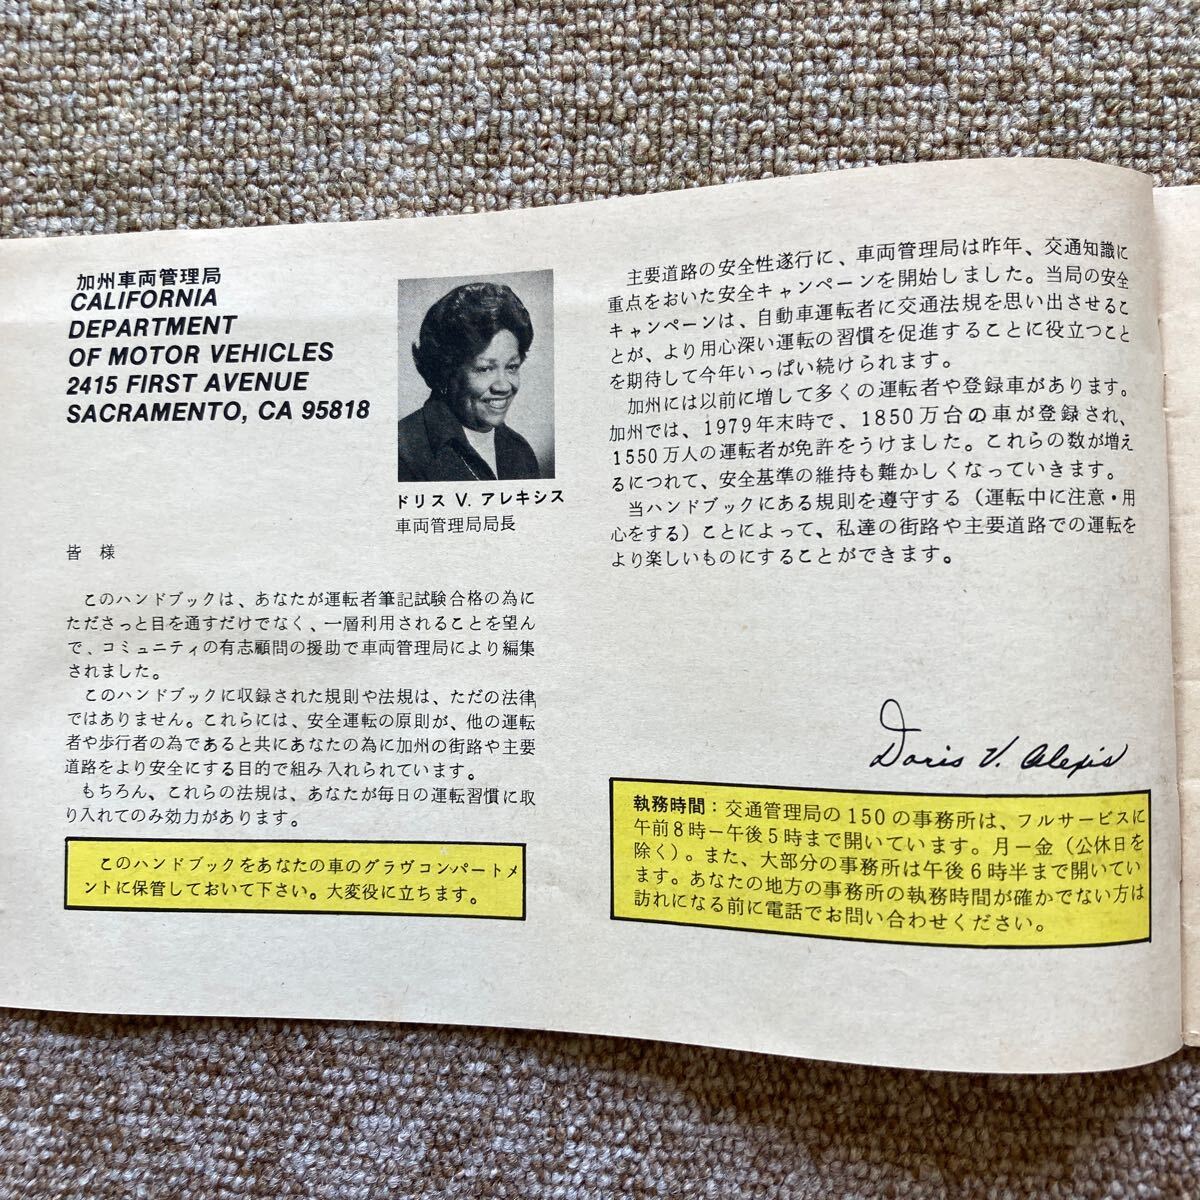 加州車両管理局
CALIFORNIA
DEPARTMENT
OF MOTOR VEHICLES
2415 FIRST AVENUE
SACRAMENTO, CA 95818
ドリス V. アレキシス
車両管理局局長
皆 様
このハンドブックは、あなたが運転者筆記試験合格の為に
たださっと目を通すだけでなく、一層利用されることを望ん
で、コミュニティの有志顧問の援助で車両管理局により編集
されました。
このハンドブックに収録された規則や法規は、ただの法律
ではありません。これらには、安全運転の原則が、他の運転
者や歩行者の為であると共にあなたの為に加州の街路や主要
道路をより安全にする目的で組み入れられています。
もちろん、これらの法規は、あなたが毎日の運転習慣に取
り入れてのみ効力があります。
このハンドブックをあなたの車のグラヴコンパートメ
ントに保管しておいて下さい。大変役に立ちます。
主要道路の安全性遂行に、車両管理局は昨年、交通知識に
重点をおいた安全キャンペーンを開始しました。当局の安全
キャンペーンは、自動車運転者に交通法規を思い出させるこ
とが、より用心深い運転の習慣を促進することに役立つこと
を期待して今年いっぱい続けられます。
加州には以前に増して多くの運転者や登録車があります。
加州では、1979年末時で、1850万台の車が登録され、
1550万人の運転者が免許をうけました。これらの数が増え
るにつれて、安全基準の維持も難かしくなっていきます。
当ハンドブックにある規則を遵守する（運転中に注意・用
心をする）ことによって、私達の街路や主要道路での運転を
より楽しいものにすることができます。
Doris V. Alexis
執務時間：交通管理局の150の事務所は、フルサービスに
午前8時ー午後5時まで開いています。月ー金（公休日を
除く）。また、大部分の事務所は午後6時半まで開いてい
ます。あなたの地方の事務所の執務時間が確かでない方は
訪れになる前に電話でお問い合わせください。